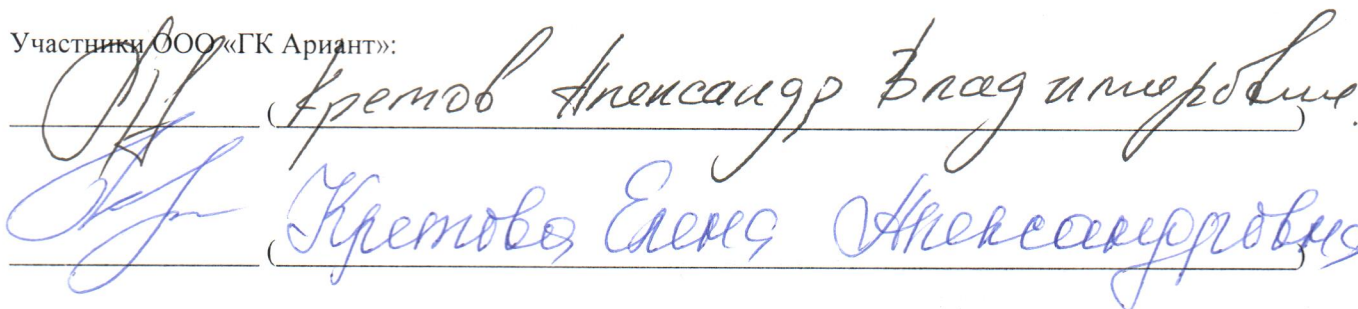 Участники ООО «ГК Ариант»:
(Кретов Александр Владимирович)
(Кретова Елена Александровна)